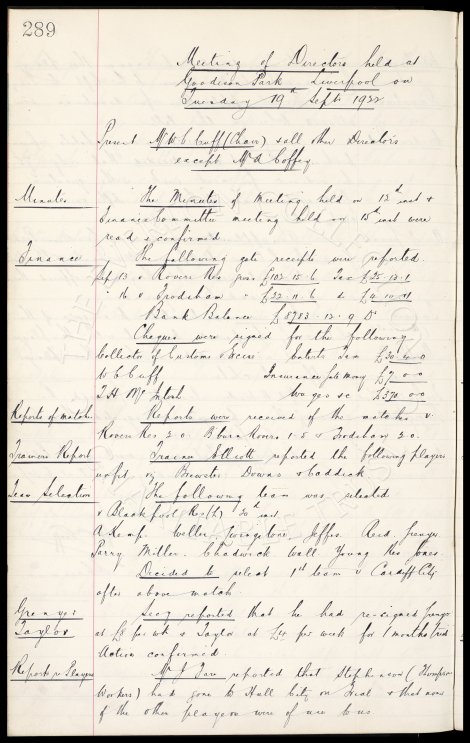 289
Meeting of Directors held at
Goodison Park Liverpool on
Tuesday 19th Sept.
Present Mr W C Cuff (Chair) & all other Directors
except Mr A Coffey
Minutes
The Minutes of Meeting held on 12th inst &
Finance Committee meeting held on 15th inst were
read & confirmed
Finance
The following gate receipts were reported.
Sep 13 v Rovers Res gross £102.15.6 Tax £25.13.1
" 16 v Frodsham " £22.11.6 do £4.10.11
Bank Balance £8783.13.9 Dr
Cheques were signed for the following
Collector of Customs & Excise Entertts Tax
W C Cuff Insurance
T H McIntosh Wages &c £370.0.0
Reports of matches
Reports were received of the matches v
Rovers Res 2.0. B'burn Rovers 1-5 & Frodsham 2.0.
Trainers Report
Trainer Elliott reported the following players
unfit viz Brewster. Downs & Caddick
Team Selection
The following team was selected
v Blackpool Res (h) 20th inst
A Kemp. Weller Livingstone, Jeffs Reid Grenyer
Parry Miller. Chadwick Wall Young Res Jones
Decided to select 1st team v Cardiff City
after above match.
Grenyer
Taylor
Secy reported that he had re-signed Grenyer
at £8 per wk & Taylor at £4 per week for 1 months trial
Action confirmed.
Reports re Players
Mr J Fare reported that Stephenson (
Workers) had gone to Hull City on Trial & that none
of the other players were of use to us.